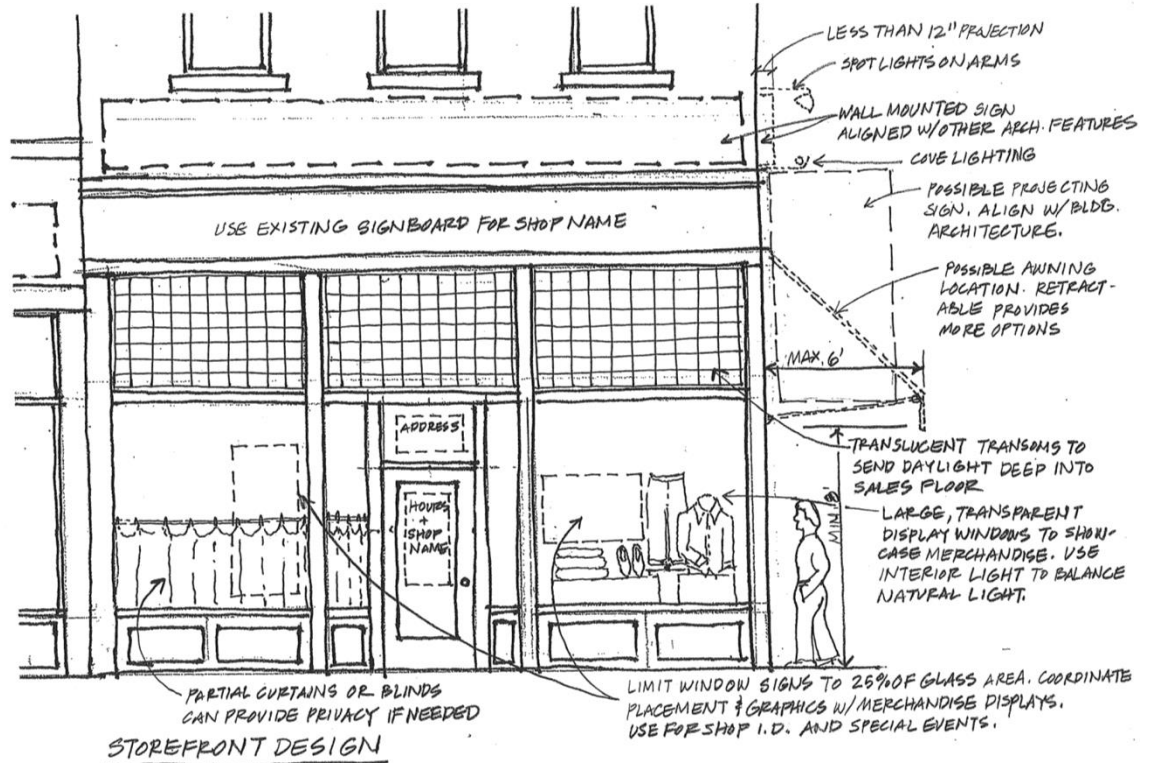 LESS THAN 12" PROJECTION
SPOT LIGHTS ON ARMS
WALL MOUNTED SIGN
ALIGNED W/OTHER ARCH. FEATURES
COVE LIGHTING
POSSIBLE PROJECTING
SIGN. ALIGN W/BLDG.
ARCHITECTURE.
USE EXISTING SIGNBOARD FOR SHOP NAME
POSSIBLE AWNING
LOCATION. RETRACT-
ABLE PROVIDES
MORE OPTIONS
MAX. 6'
ADDRESS
TRANSLUCENT TRANSOMS TO
SEND DAYLIGHT DEEP INTO
SALES FLOOR
HOURS
+
SHOP
NAME
MIN. 8'
LARGE, TRANSPARENT
DISPLAY WINDOWS TO SHOW-
CASE MERCHANDISE. USE
INTERIOR LIGHT TO BALANCE
NATURAL LIGHT.
PARTIAL CURTAINS OR BLINDS
CAN PROVIDE PRIVACY IF NEEDED
LIMIT WINDOW SIGNS TO 25% OF GLASS AREA. COORDINATE
PLACEMENT & GRAPHICS W/ MERCHANDISE DISPLAYS.
USE FOR SHOP I.D. AND SPECIAL EVENTS.
STOREFRONT DESIGN